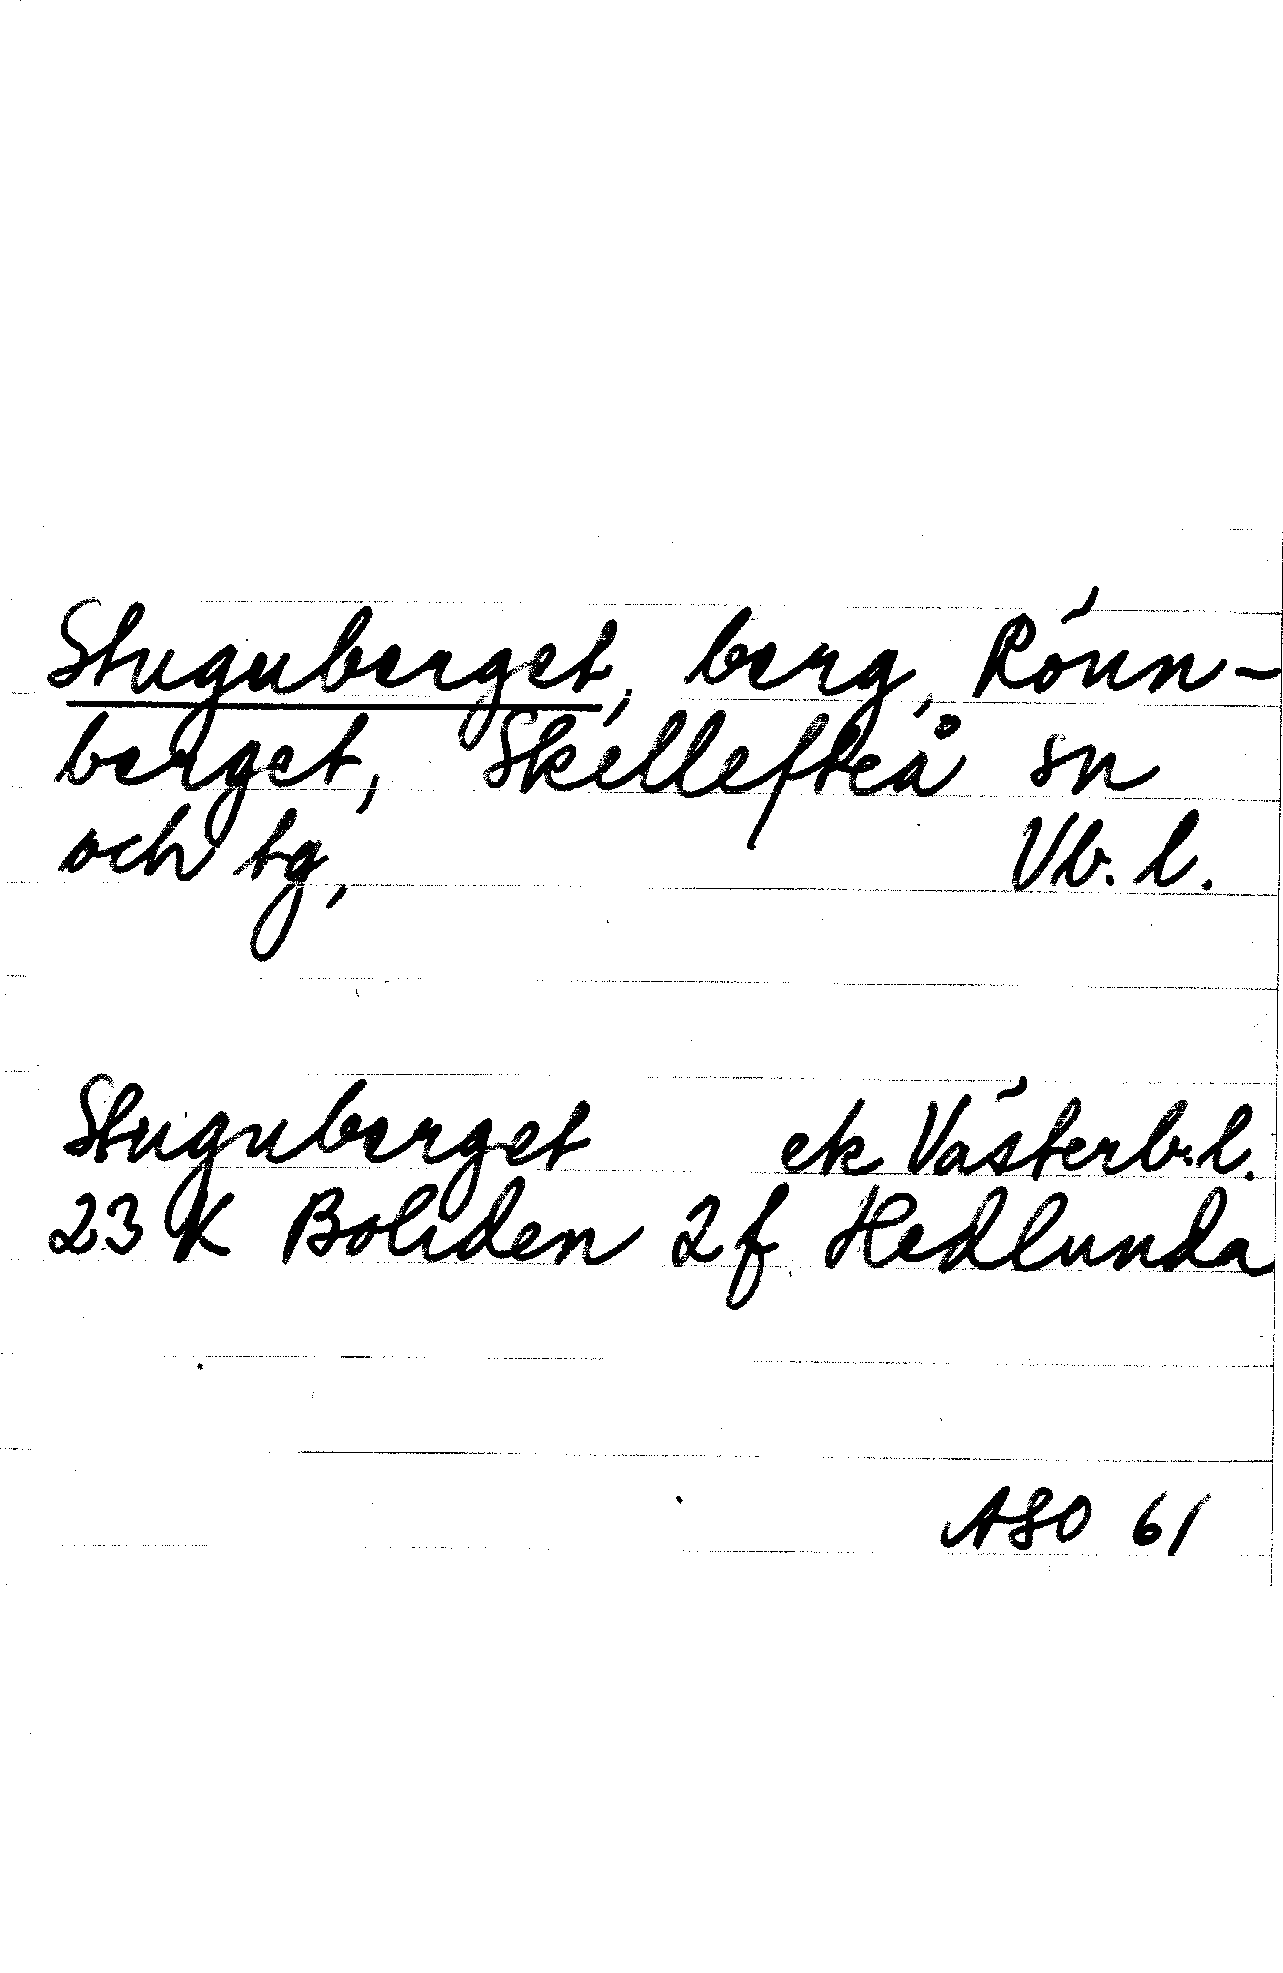 Stuguberget, berg, Rönn-
berget, Skellefteå sn
och tg, Vb. l.
Stuguberget ek Västerb. l.
23 K Boliden 2 f Hedlunda
ASO 61